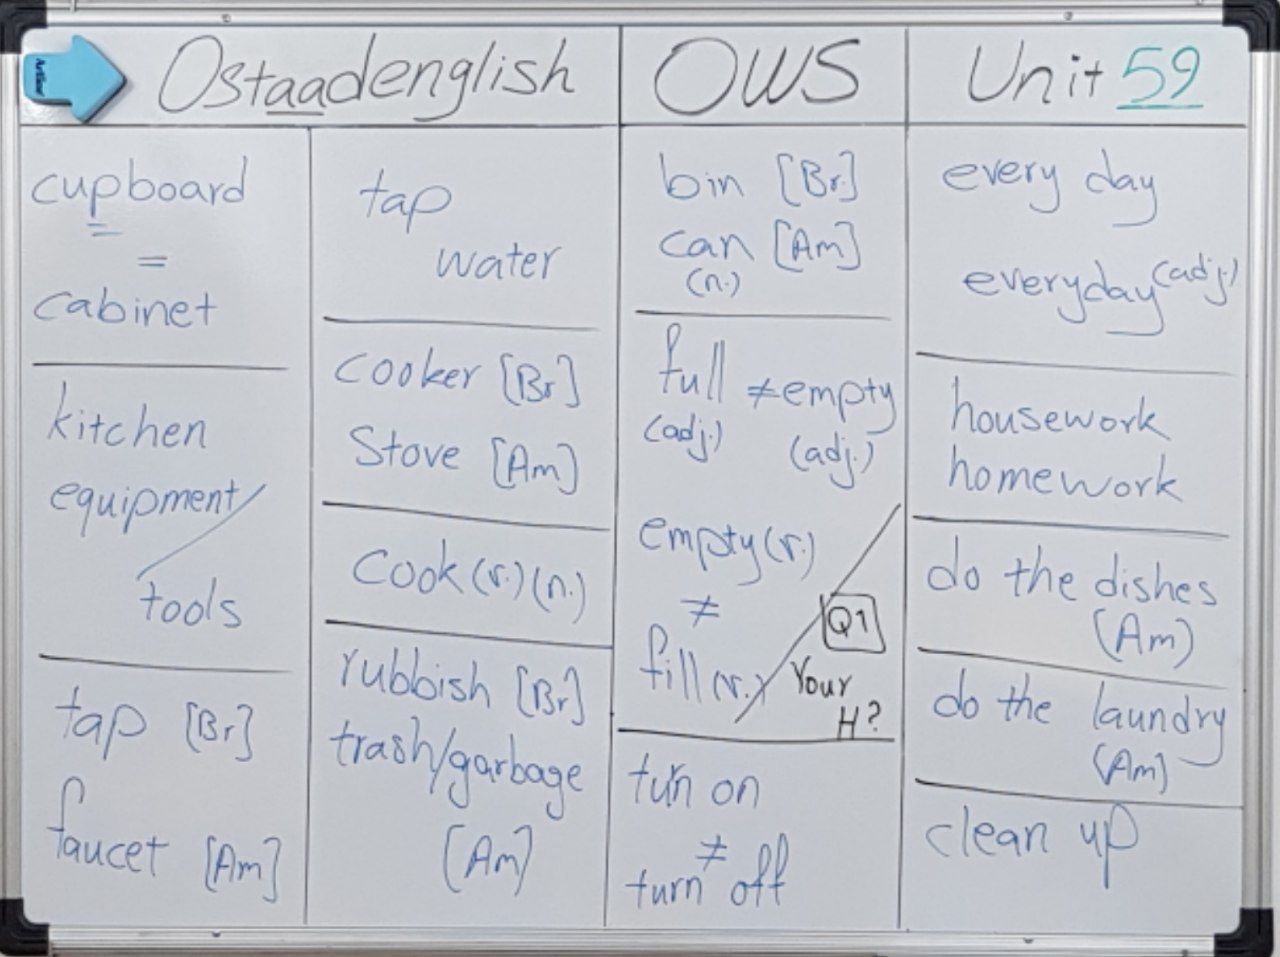 Ostaadenglish
OWS
Unit 59
cupboard
=
cabinet
kitchen
equipment/
tools
tap [Br]
faucet [Am]
tap
water
cooker [Br]
Stove [Am]
Cook (v.) (n.)
rubbish [Br]
trash/garbage
[Am]
bin [Br.]
can [Am]
(n.)
full ≠ empty
(adj.) (adj.)
empty (v.)
≠
fill (v.)
Q1
Your
H?
turn on
≠
turn off
every day
everyday (adj.)
housework
homework
do the dishes
(Am)
do the laundry
(Am)
clean up